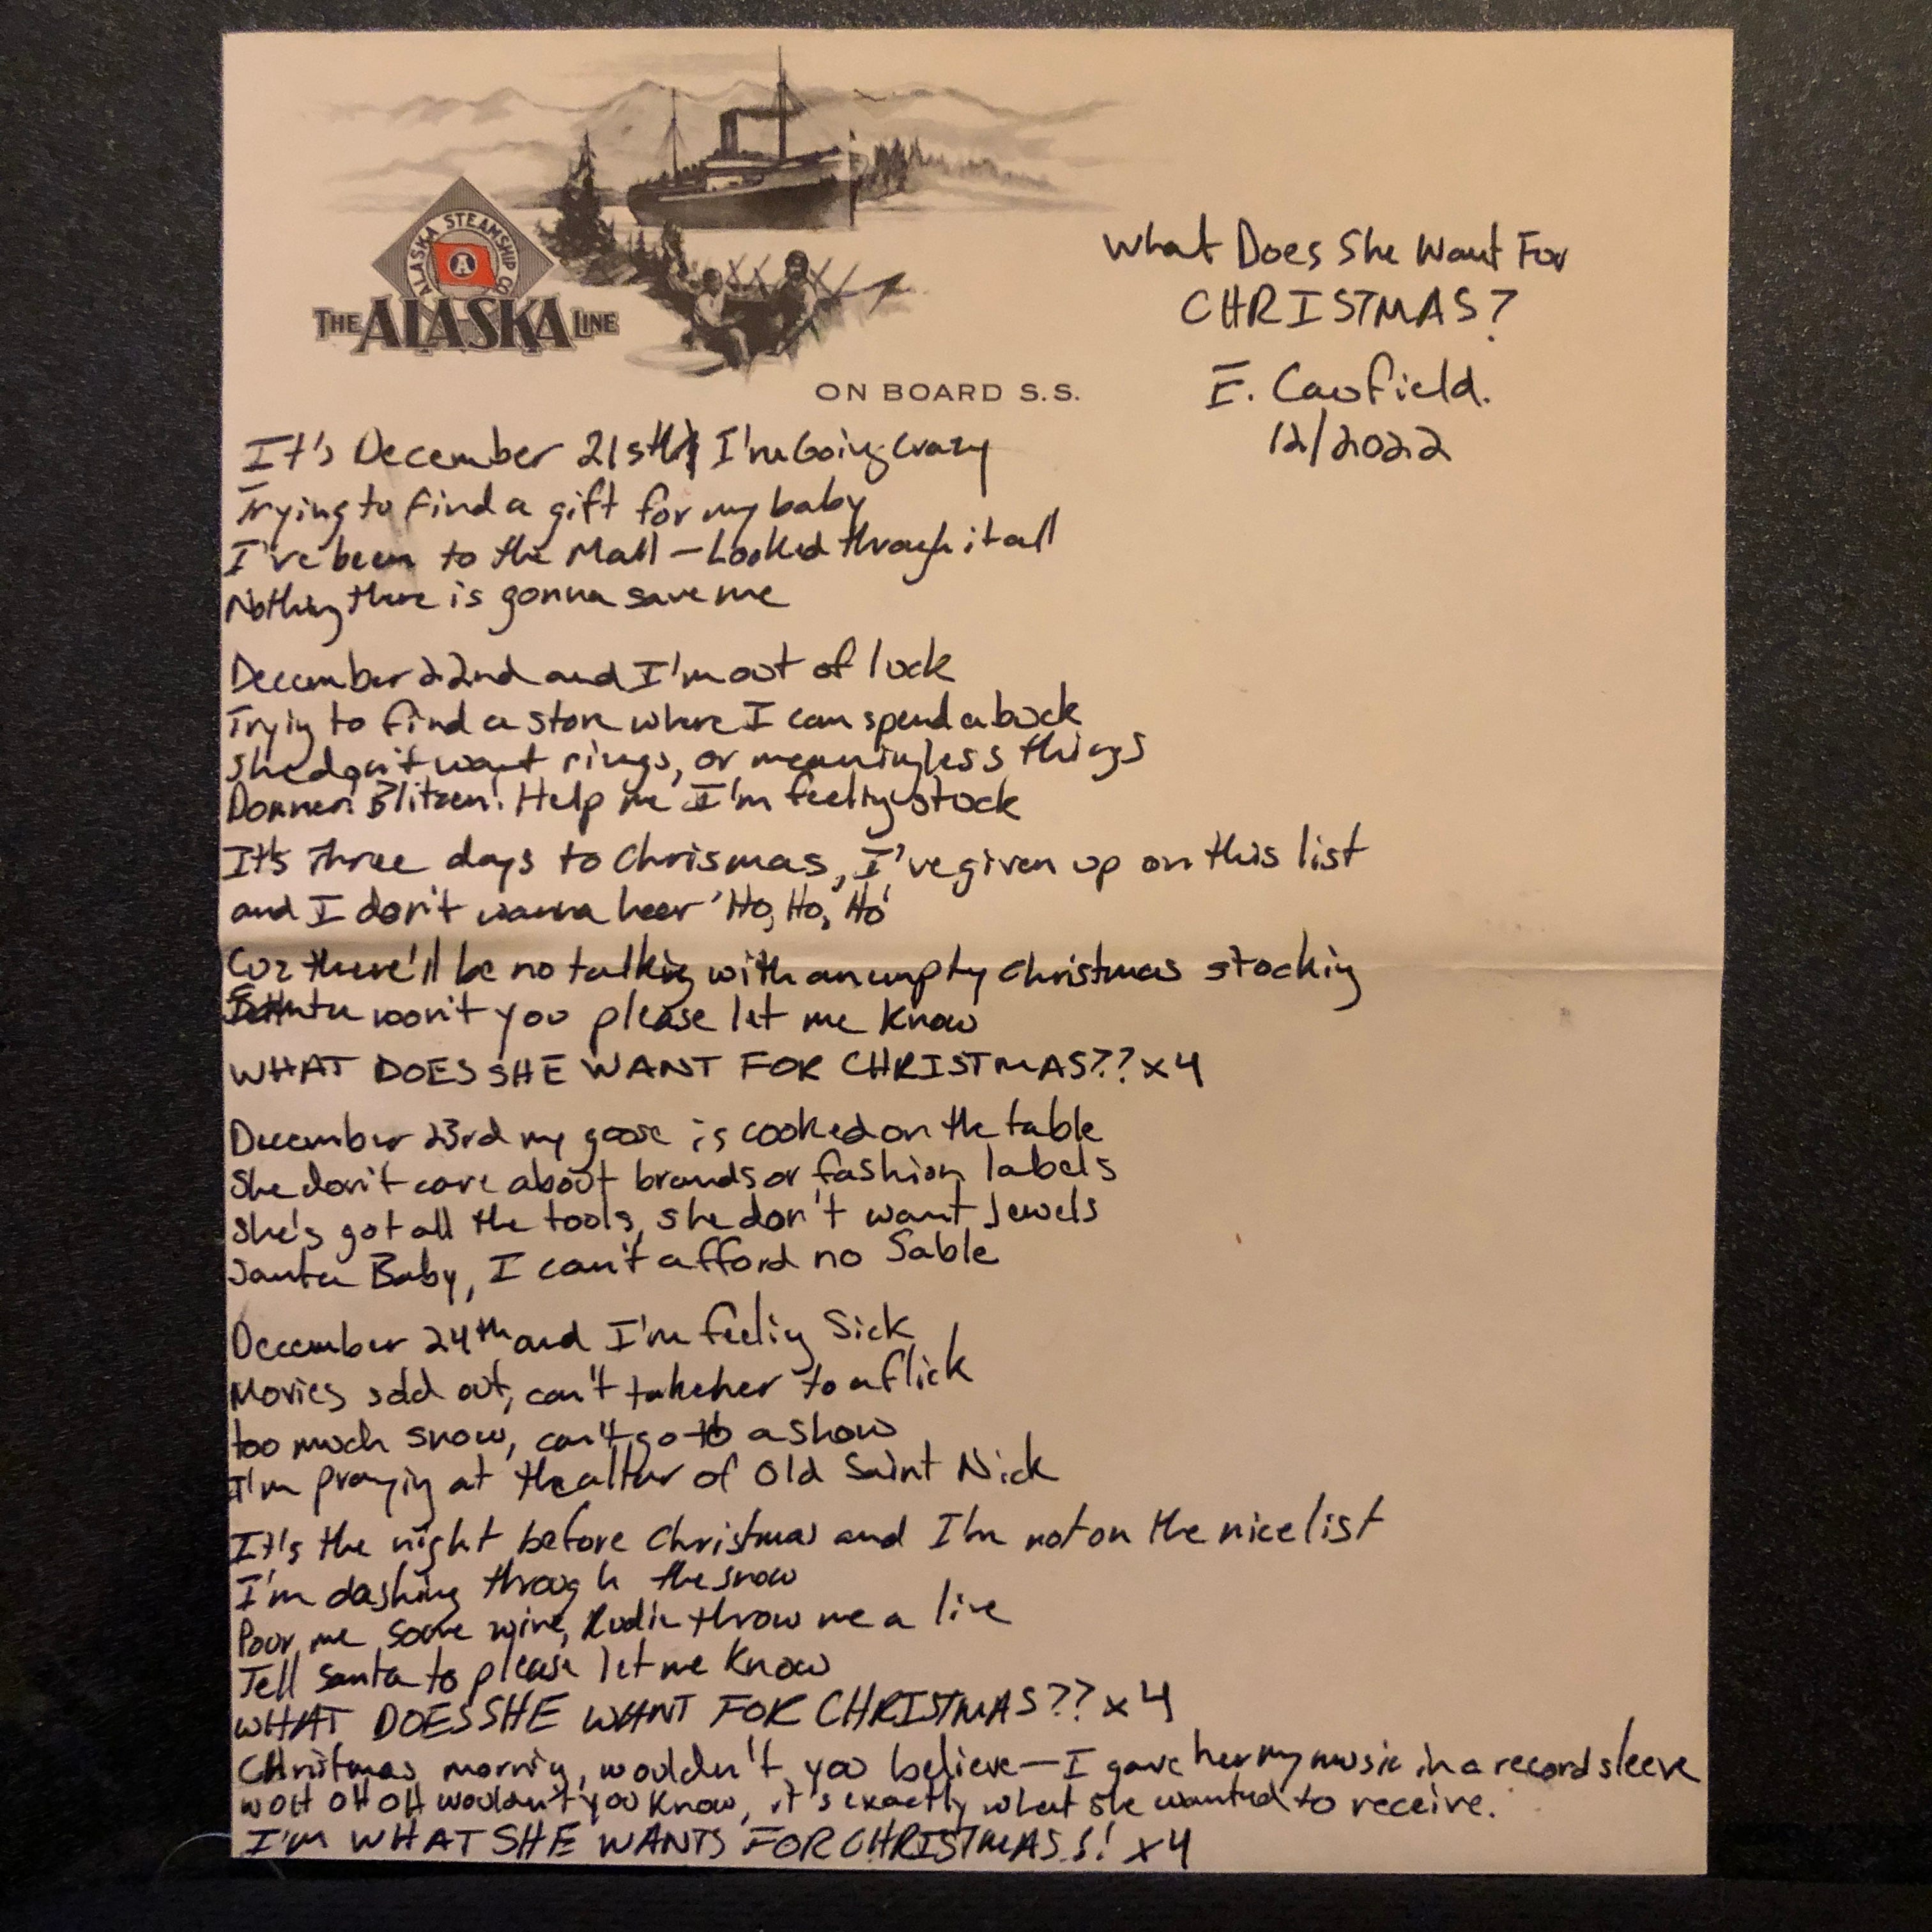 ALASKA STEAMSHIP CO
A
THE ALASKA LINE
ON BOARD S.S.
What Does She Want For
CHRISTMAS?
E. Cawfield.
12/2022
It's December 21st I'm Going Crazy
Trying to find a gift for my baby
I've been to the Mall - Looked through it all
Nothing there is gonna save me
December 22nd and I'm out of luck
Trying to find a store where I can spend a buck
She don't want rings, or meaningless things
Donner! Blitzen! Help me I'm feeling stuck
It's Three days to Chrismas, I've given up on this list
and I don't wanna hear 'Ho, Ho, Ho'
Cuz there'll be no talking with an empty Christmas stocking
Santa won't you please let me know
WHAT DOES SHE WANT FOR CHRISTMAS?? x4
December 23rd my goose is cooked on the table
She don't care about brands or fashion labels
She's got all the tools, she don't want Jewels
Santa Baby, I can't afford no Sable
December 24th and I'm feeling Sick
Movies sold out, can't take her to a flick
too much snow, can't go to a show
I'm praying at the altar of Old Saint Nick
It's the night before Christmas and I'm not on the nice list
I'm dashing through the snow
Pour me some wine, Rudie throw me a line
Tell Santa to please let me know
WHAT DOES SHE WANT FOR CHRISTMAS?? x4
Christmas morning, wouldn't you believe - I gave her my music in a record sleeve
WOH OH OH wouldn't you know, it's exactly what she wanted to receive.
I'M WHAT SHE WANTS FOR CHRISTMAS!! x4